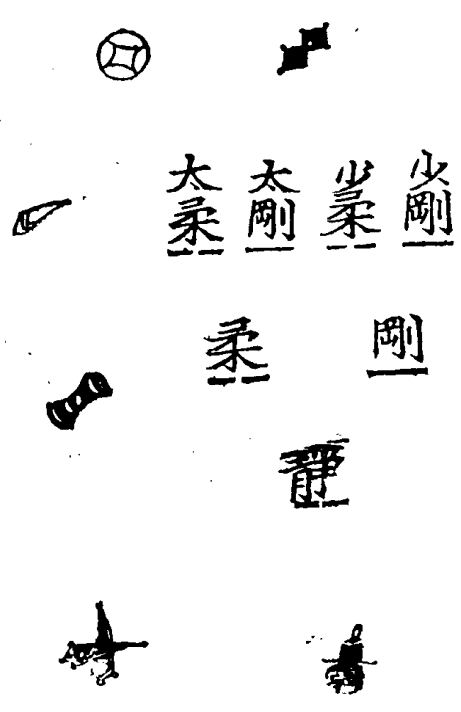 少剛
少柔
太剛
太柔
剛
柔
靜